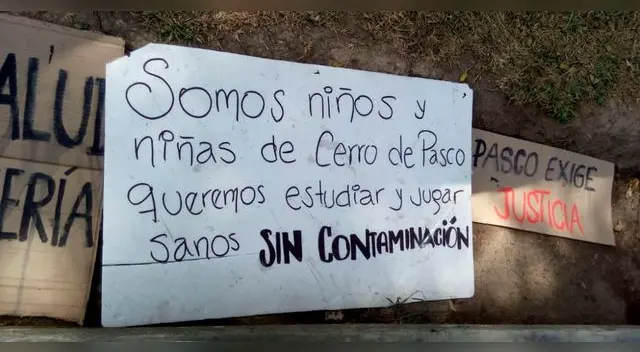 Somos niños y
niñas de Cerro de Pasco
queremos estudiar y jugar
sanos SIN CONTAMINACIÓN
PASCO EXIGE
JUSTICIA